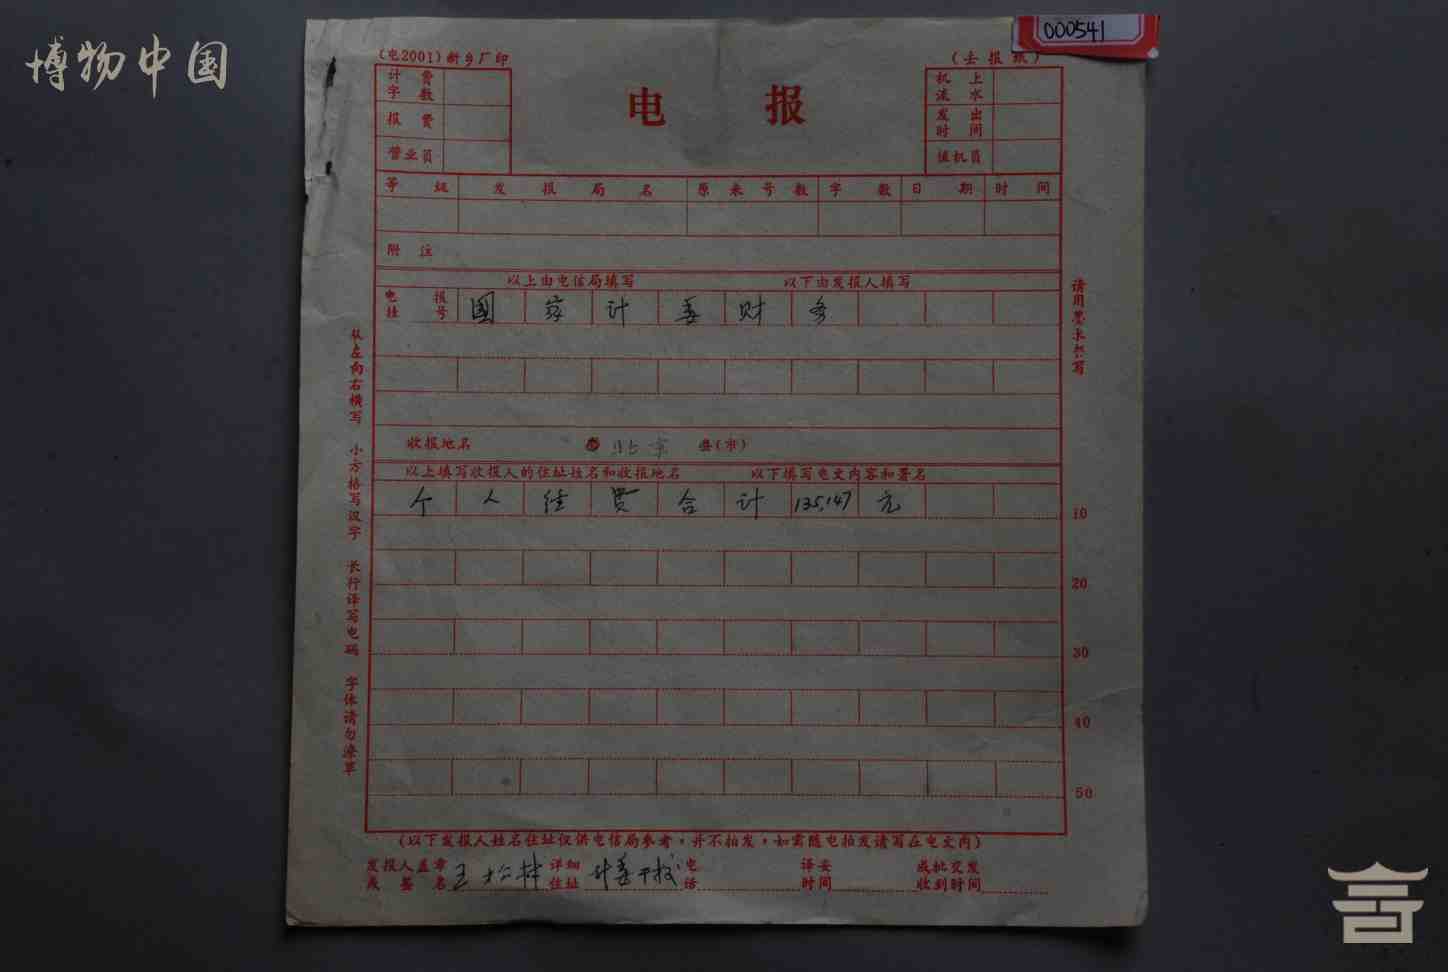 博物中国
000541
(电2001)新乡厂印
(去报纸)
计费字数
报费
营业员
电报
机上流水
发出时间
值机员
等级 发报局名 原来号数 字数 日期 时间
附注
以上由电信局填写 以下由发报人填写
电报挂号 国家计委财务
收报地名 北京 县(市)
以上填写收报人的住址姓名和收报地名 以下填写电文内容和署名
个人经费合计135,147元
10
20
30
40
50
从左向右横写 小方格写汉字 长行译写电码 字体请勿潦草
请用墨水书写
(以下发报人姓名住址仅供电信局参考，并不拍发，如需随电拍发请写在电文内)
发报人盖章或签名 王 详细住址 计委干校 电话 译妥时间 或批交发收到时间